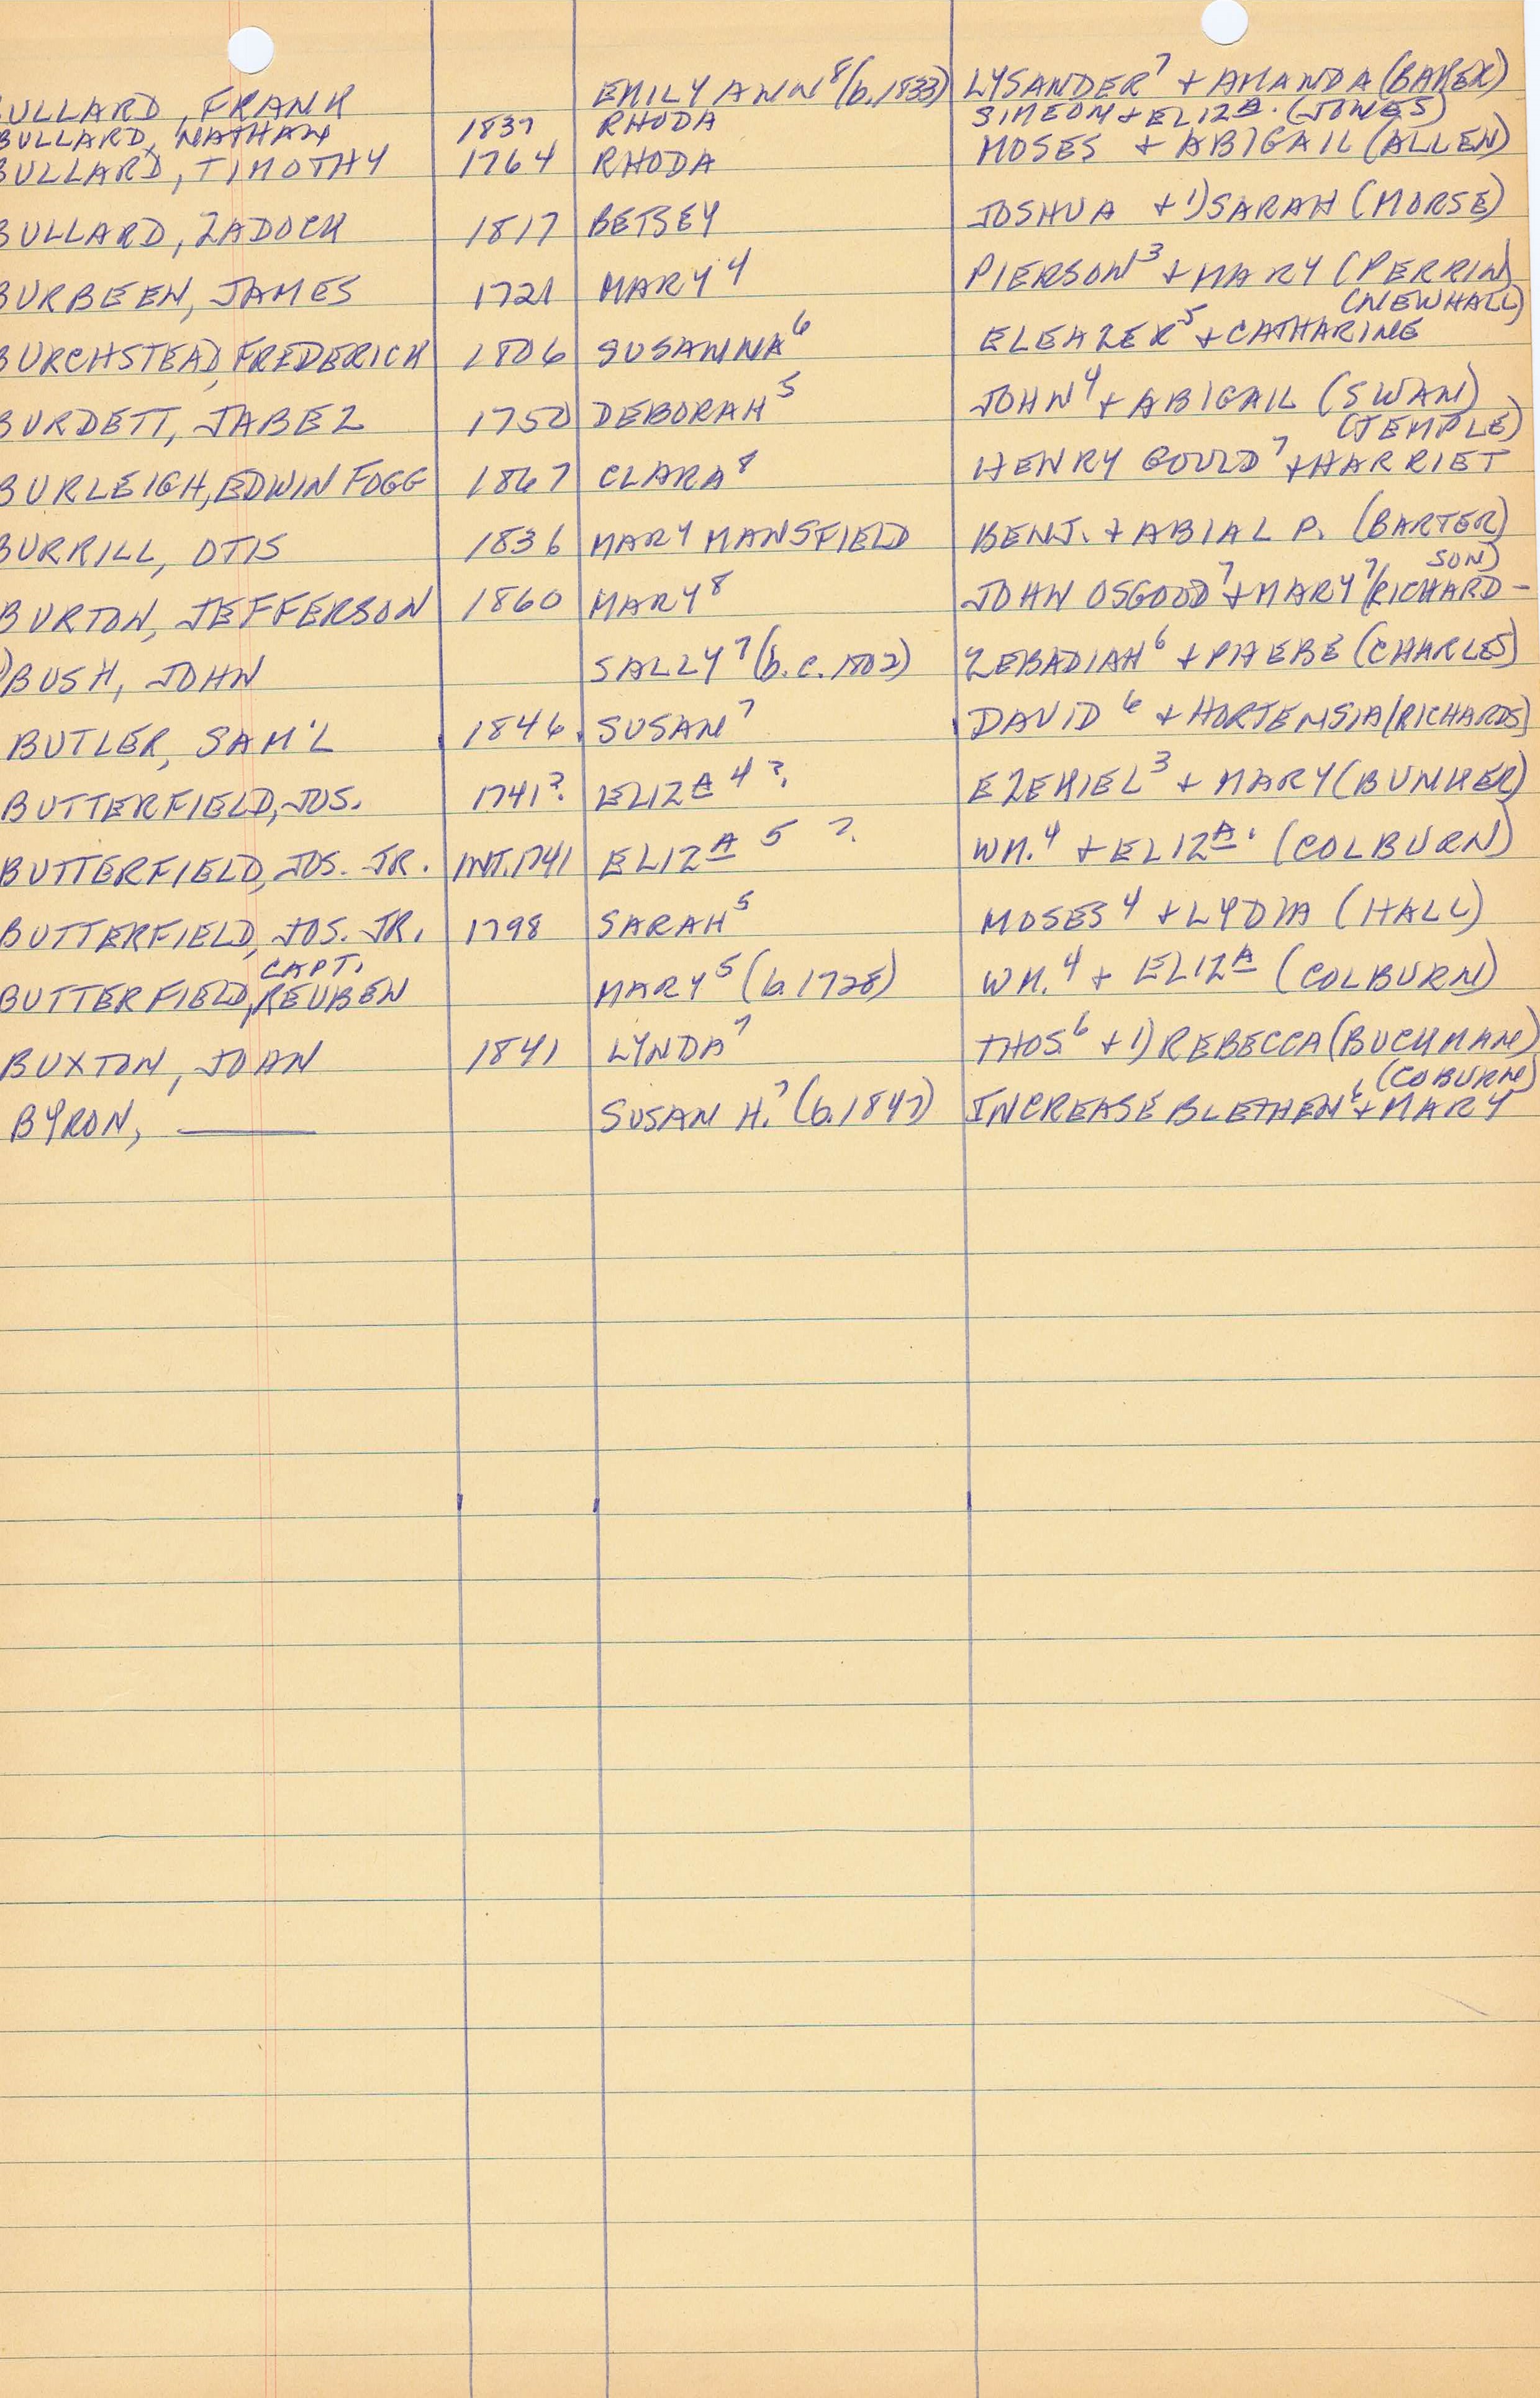 BULLARD, FRANK EMILY ANN⁸ (b. 1833) LYSANDER⁷ + AMANDA (BAKER)
BULLARD, NATHAN 1837 RHODA SIMEON + ELIZA. (JONES)
BULLARD, TIMOTHY 1764 RHODA MOSES + ABIGAIL (ALLEN)
BULLARD, ZADOCK 1817 BETSEY JOSHUA + 1) SARAH (MORSE)
BURBEEN, JAMES 1721 MARY⁴ PIERSON³ + MARY (PERRIN)
(NEWHALL)
BURCHSTEAD, FREDERICK 1806 SUSANNA⁶ ELEAZER⁵ + CATHARINE
BURDETT, JABEZ 1750 DEBORAH⁵ JOHN⁴ + ABIGAIL (SWAN)
(TEMPLE)
BURLEIGH, EDWIN FOGG 1867 CLARA⁸ HENRY GOULD⁷ + HARRIET
BURRILL, OTIS 1836 MARY MANSFIELD BENJ. + ABIAL P. (BARTER)
SON)
BURTON, JEFFERSON 1860 MARY⁸ JOHN OSGOOD⁷ + MARY⁷ (RICHARD-
) BUSH, JOHN SALLY⁷ (b. c. 1802) ZEBADIAH⁶ + PHEBE (CHARLES)
BUTLER, SAM'L 1846 SUSAN⁷ DAVID⁶ + HORTENSIA (RICHARDS)
BUTTERFIELD, JOS. 1741? ELIZA 4 ?. EZEKIEL³ + MARY (BUNKER)
BUTTERFIELD, JOS. JR. INT. 1741 ELIZA 5 ?. WM.⁴ + ELIZA. (COLBURN)
BUTTERFIELD, JOS. JR. 1798 SARAH⁵ MOSES⁴ + LYDIA (HALL)
CAPT.
BUTTERFIELD, REUBEN MARY⁵ (b. 1728) WM.⁴ + ELIZA (COLBURN)
BUXTON, JOHN 1841 LYNDA⁷ THOS.⁶ + 1) REBECCA (BUCKMAN)
(COBURN)
BYRON, ——— SUSAN H.⁷ (b. 1847) INCREASE BLETHEN⁶ + MARY